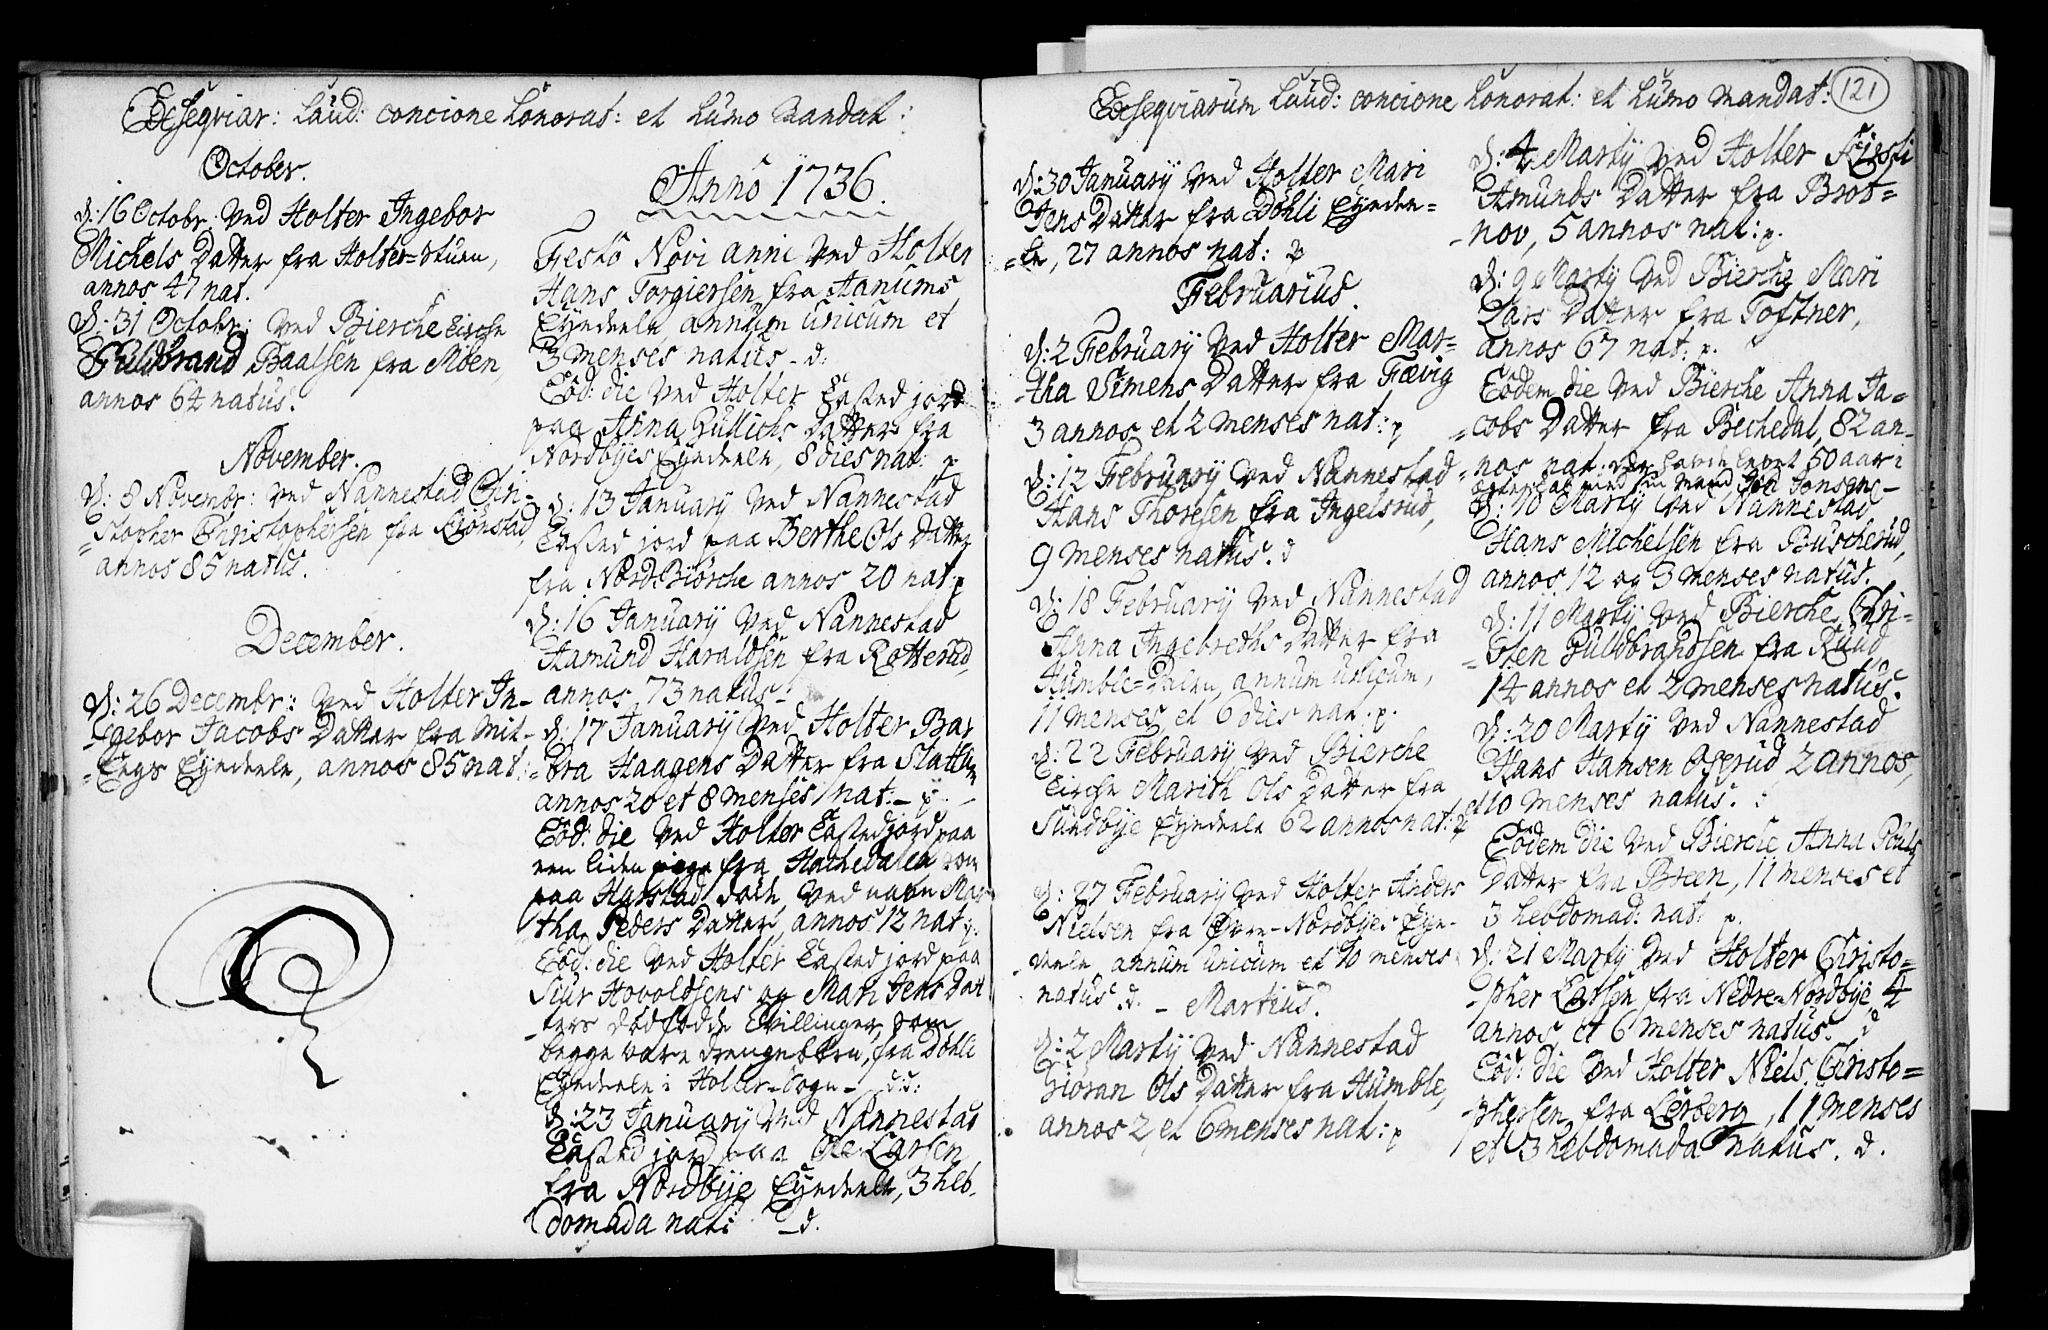 Exseqviar: Laud: concione honorat: et humo mandat:
October.
d: 16 Octobr: ved Holter Ingebor
Michels Datter fra Holter-stuen,
annos 47 nat.
d: 31 Octobr: ved Bierche Kirche
Guldbrand Paalsen fra Moen,
annos 64 natus.
November.
d: 8 Novembr: ved Nannestad Chri-
=stopher Christophersen fra
annos 85 natus.
December.
d: 26 Decembr: ved Holter In-
=gebor Jacobs Datter fra Mit-
=Engs Eyedeele, annos 85 nat:
Anno 1736.
Festo Novi anni ved Holter
Hans Torgiersen fra Hanums
Eyedeele annum unicum et
3 menses natus - d:
Eod: die ved Holter Casted jord
paa Anna Gullichs Datter fra
Nordbyes Eyedeele, 8 dies nat: p
d: 13 January ved Nannestad
Casted jord paa Berthe Ols Datter
fra Nord Biørche annos 20 nat: p
d: 16 January ved Nannestad
Hamund Haraldsen fra Rotterud,
annos 73 natus.
d: 17 January ved Holter Bar
=bra Haagens Datter fra
annos 20 et 8 menses nat. - p. -
Eod: die ved Holter Casted jord paa
een liden pige fra Hachedalen som
paa Harstad døde, ved nafn Mar
tha Peders Datter, annos 12 nat: p.
Eod: die ved Holter Casted jord paa
Siur Hovoldsens og Mari Jens Dat
ters dødfødde tvillinger, som
begge vare drengebørn, fra Døhli
Eyedeele i Holter-Sogn - d:d:
d: 23 January ved Nannestad
Casted jord paa Ole Larsen
fra Nordbye Eyedeele, 3 heb-
domada nat: d.
Exseqviarum Laud: concione honorat: et humo mandat: 121
d: 30 January ved Holter Mari
Jens Datter fra Døhli Eyedee=
=le, 27 annos nat: p
Februarius.
d: 2 February ved Holter Mar=
tha Simens Datter fra Fævig
3 annos et 2 menses nat: p
d: 12 February ved Nannestad
Hans Thoresen fra Ingelsrud,
9 menses natus. d
d: 18 February ved Nannestad
Anna Ingebreths Datter fra
Humble=Dalen, annum unicum,
11 menses et 6 dies nat: p.
d: 22 February ved Bierche
Kirche Marith Ols Datter fra
Sundbye Eyedeele 62 annos nat: p
d: 27 February ved Holter Anders
Nielsen fra Øvre-Nordbyes Eye-
deele annum unicum et 10 menses
natus. d. - Martius.
d: 2 Marty ved Nannestad
Giøran Ols Datter fra Humble,
annos 2, et 6 menses nat: p
d: 4 Marty ved Holter Kirsti
Amunds Datter fra Brot=
-nov, 5 annos nat: p.
d: 9 Marty ved Bierche Mari
Lars Datter fra Toftner,
annos 67 nat: p.
Eodem die ved Bierche Anna Ja=
=cobs Datter fra Bechedal, 82 an-
=nos nat: der hafde levet 50 aar i
Egteskab med sin Mand Joe Jonsen -
d: 10 Marty ved Nannestad
Hans Michelsen fra Buscherud,
annos 12 og 3 menses natus.
d: 11 Marty ved Bierche Chri-
=sten Guldbrandsen fra Ruud
14 annos et 2 menses natus.
d: 20 Marty ved Nannestad
Hans Hansen Ogerud 2 annos,
et 10 menses natus. :
Eodem die ved Bierche Anna Pouls
Datter fra Breen, 11 menses et
3 hebdomad: nat: p.
d: 21 Marty ved Holter Christo=
-pher Larsen fra Nedre-Nordbye, 4
annos et 6 menses natus. d
Eod: die ved Holter Niels Christo=
-phersen fra Lerberg, 11 menses
et 3 hebdomada natus. d.